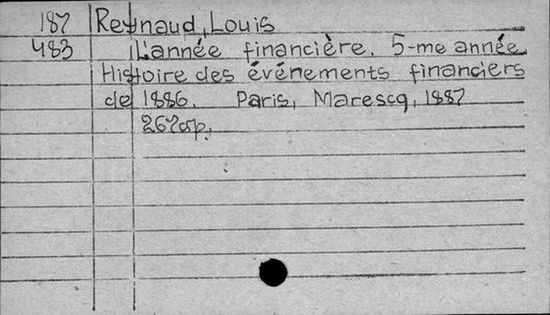 187 Reynaud, Louis
483 L'année financière. 5-me année.
Histoire des événements financiers
de 1886. Paris, Marescq, 1887